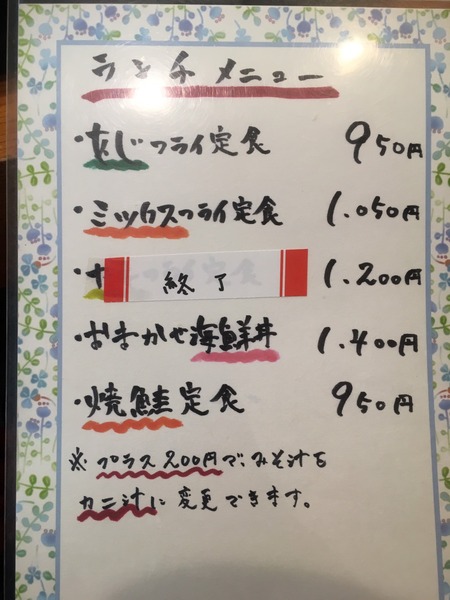 ランチメニュー
・あじフライ定食 950円
・ミックスフライ定食 1.050円
終了 1.200円
・おまかせ海鮮丼 1.400円
・焼鮭定食 950円
※プラス200円で、みそ汁を
カニ汁に変更できます。